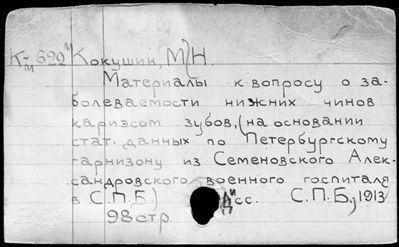 К-м 622 Кокушин, М.Н.
Материалы к вопросу о за-
болеваемости нижних чинов
кариэсом зубов, (на основании
стат. данных по Петербургскому
гарнизону из Семеновского Алек-
сандровского военного госпиталя
в С.П.Б.) Дисс. С.П.Б., 1913
98 стр.